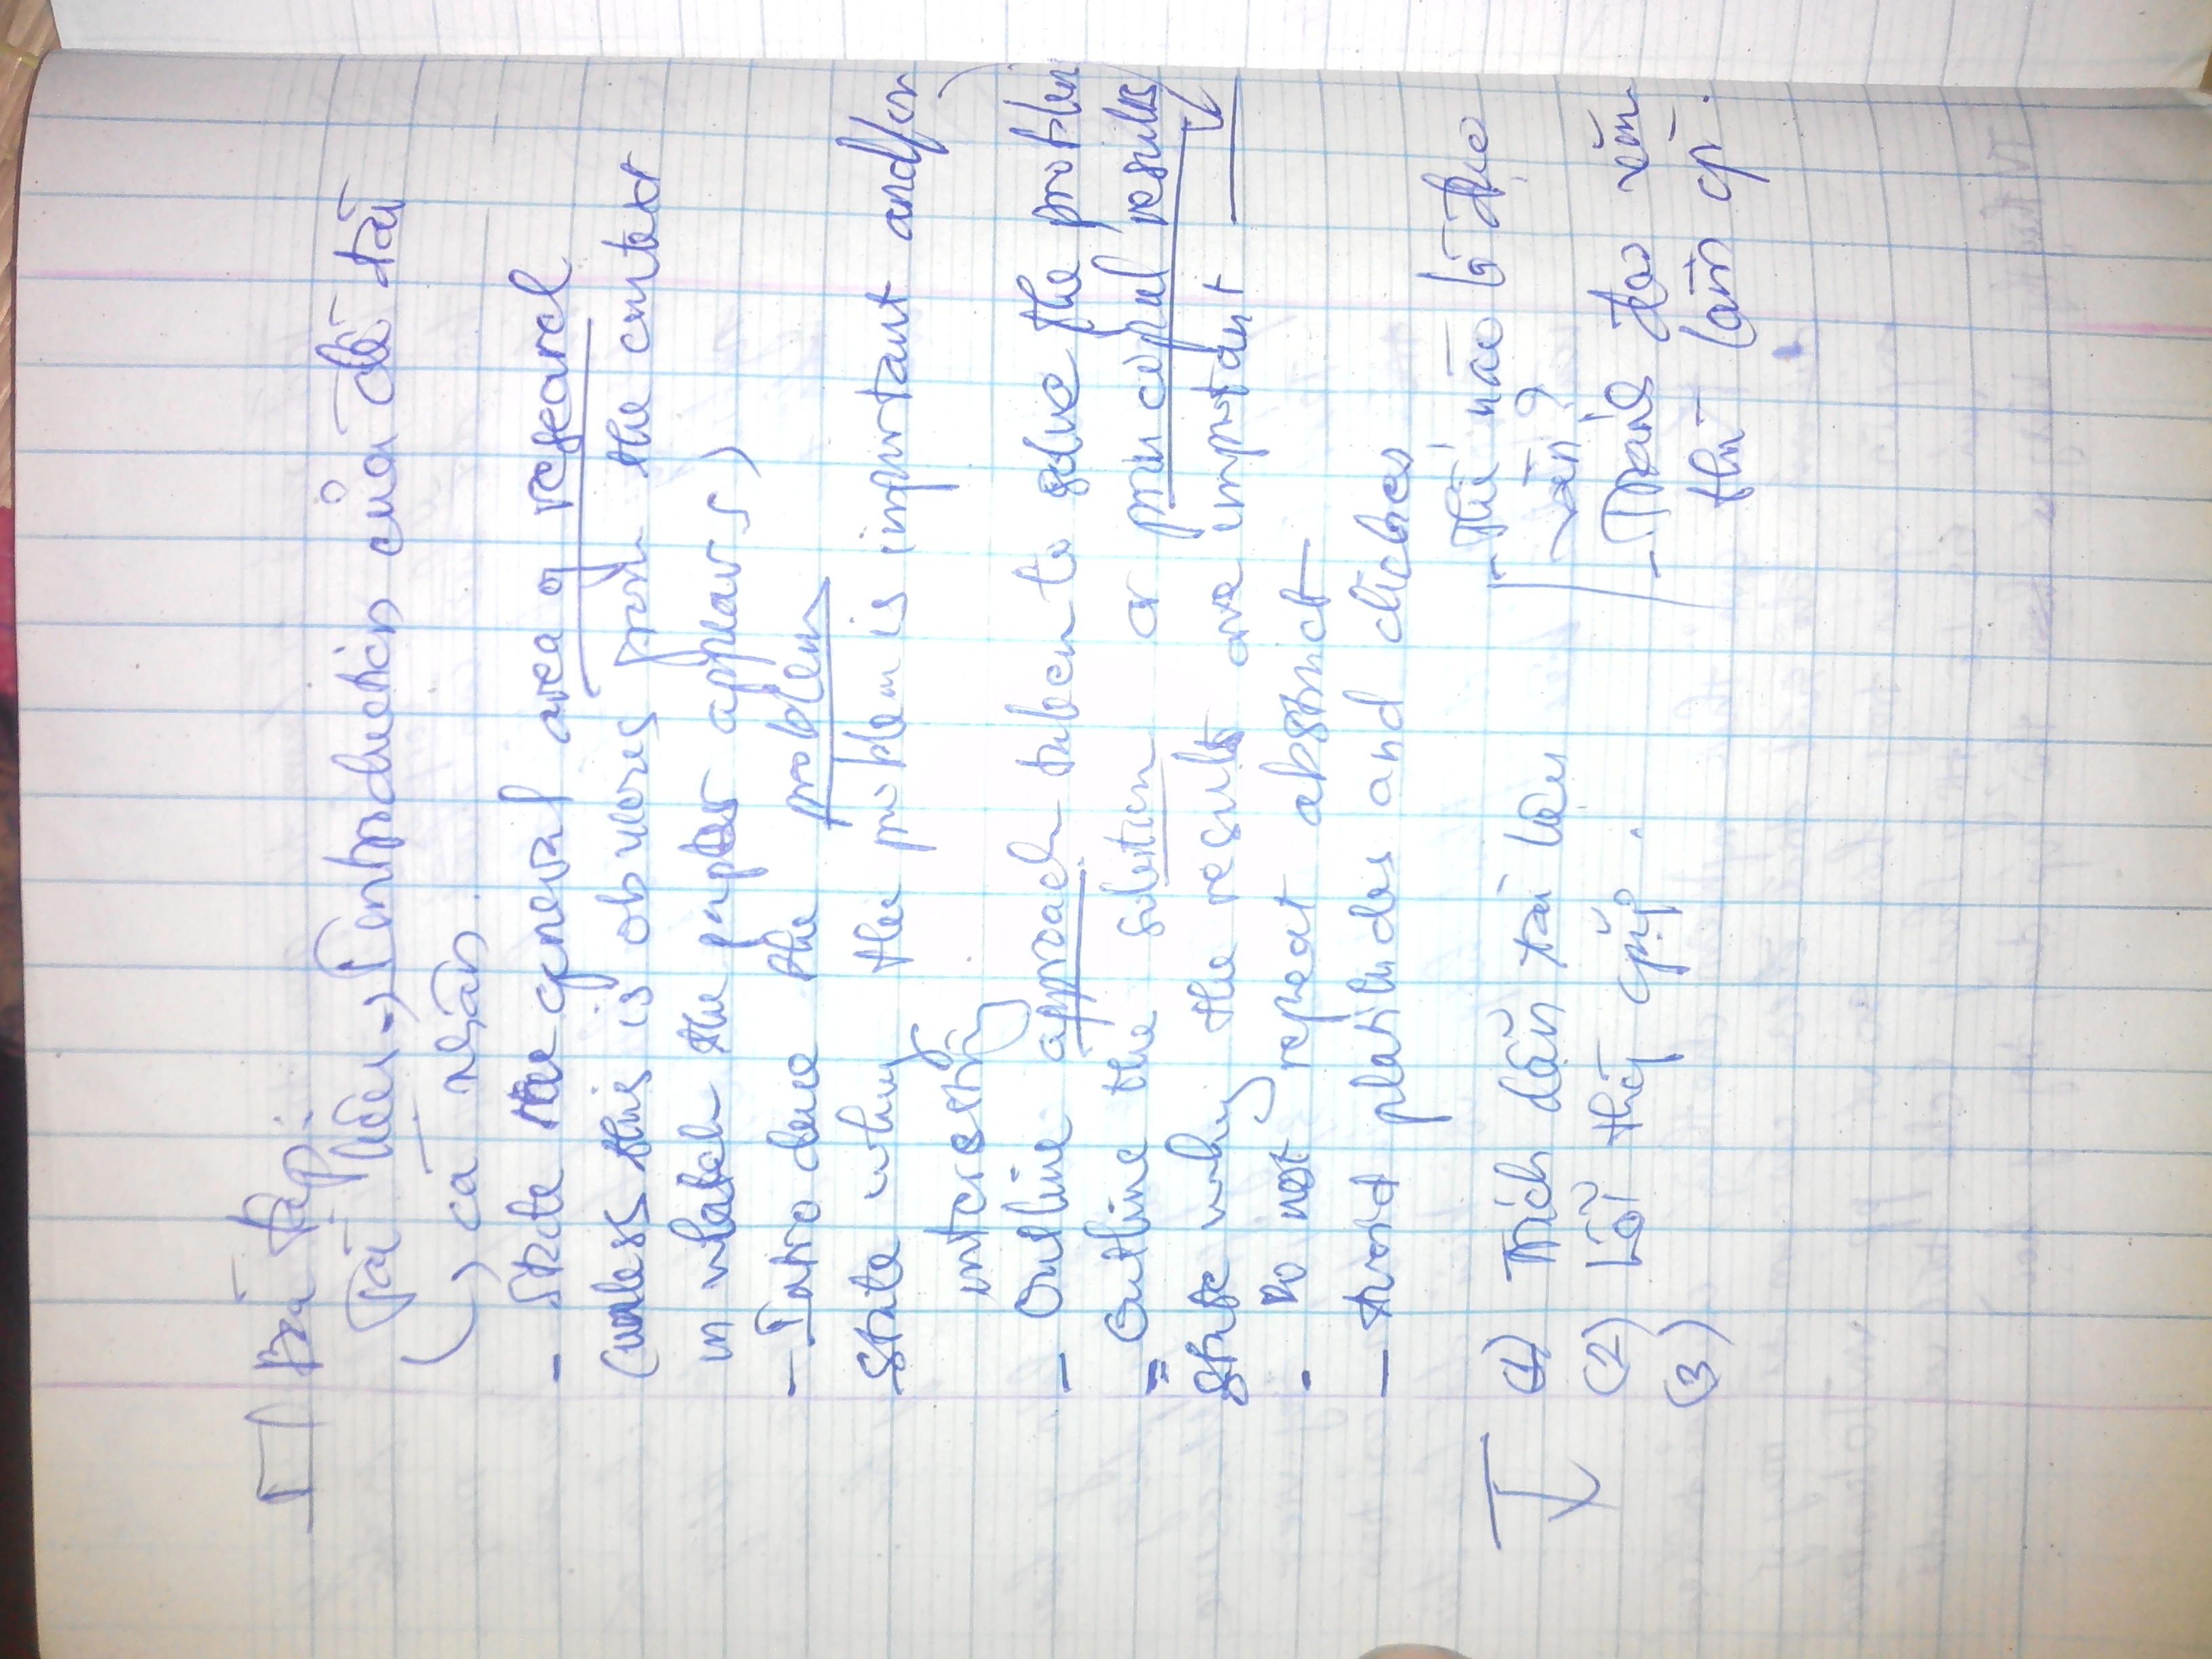 Bài tập:
Tài liệu → Introduction của đề tài
cá nhân.
- State the general area of research
(unless this is obvious from the context
in which the paper appears)
- Introduce the problem
State why the problem is important and/or
interesting
- Outline approach taken to solve the problem
= Outline the solution or principal results
State why the results are important
- Do not repeat abstract
- Avoid platitudes and cliches
(1) Trích dẫn tài liệu
(2) Lỗi thg gặp.
(3)
Thế nào là đạo
văn?
- Tránh đạo văn
thì làm gì.